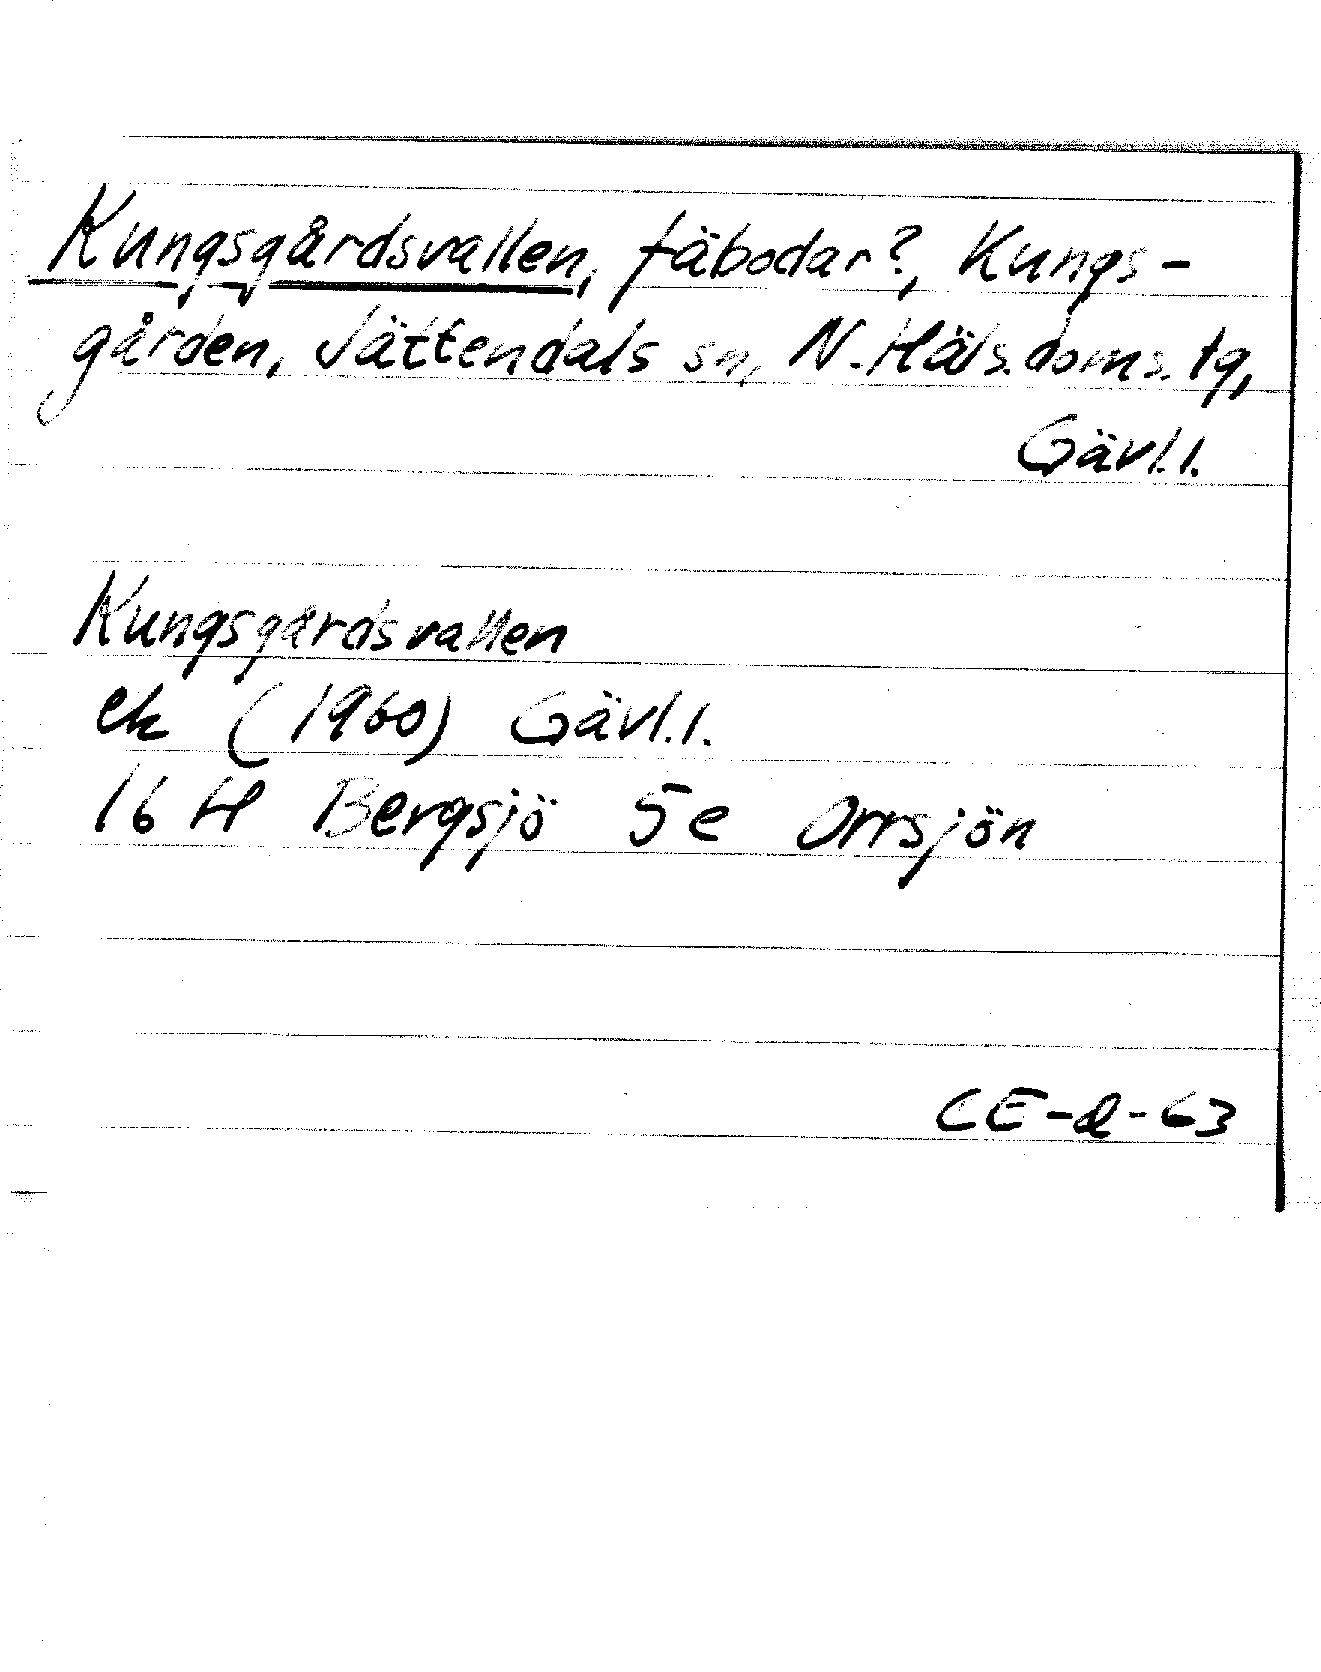 Kungsgårdsvallen, fäbodar?, Kungs-
gården, Jättendals sn, N. Häls. doms. tg,
Gävl.l.
Kungsgårdsvallen
ek (1960) Gävl.l.
16 H Bergsjö 5e Orrsjön
CE-d-63